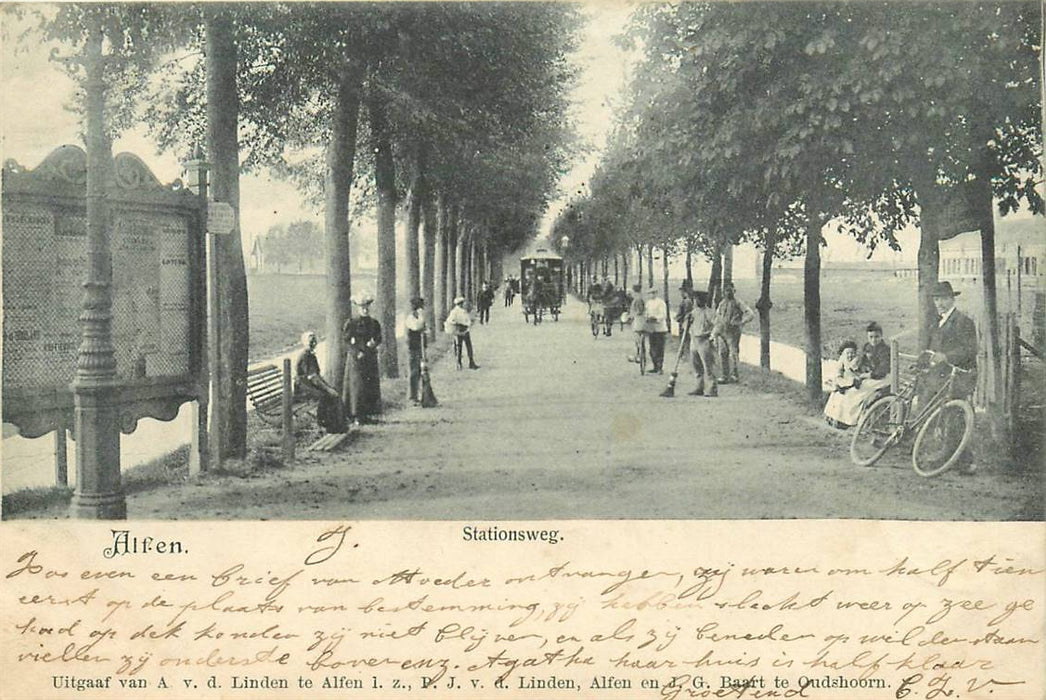 Alfen.
Stationsweg.
J.
Zoo even een brief van Moeder ontvangen, zij waren om half tien
eerst op de plaats van bestemming, zij hebben slecht weer op zee ge
had op dek konden zij niet blijven, en als zij beneden op wilden staan
vielen zij onderste boven enz. Agatha haar huis is half klaar
Uitgaaf van A. v. d. Linden te Alfen l. z., P. J. v. d. Linden, Alfen en J. G. Baart te Oudshoorn.
Groetend